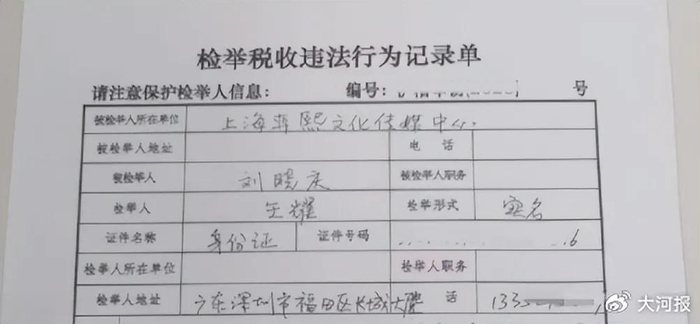 检举税收违法行为记录单
请注意保护检举人信息： 编号： 号
被检举人所在单位 上海菲熙文化传媒中心
被检举人地址 电 话
被检举人 刘晓庆 被检举人职务
检举人 王耀 检举形式 实名
证件名称 身份证 证件号码 6
检举人所在单位 检举人职务
检举人地址 广东深圳市福田区长城大 话 133
大河报